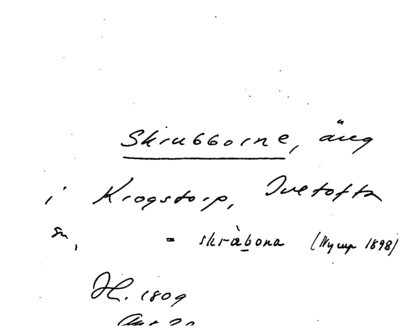 Skrubborne, äng
i Krogstorp, Ivetofta
sn, = skràbona (Nyup 1898)
H. 1809